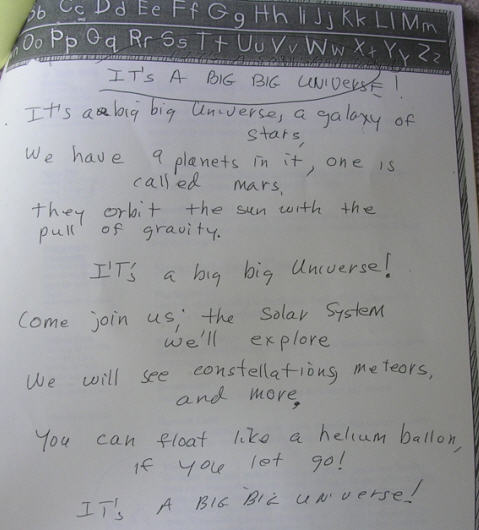 Bb Cc Dd Ee Ff Gg Hh Ii Jj Kk Ll Mm
Oo Pp Qq Rr Ss Tt Uu Vv Ww Xx Yy Zz
IT's A BIG BIG UNIVERSE!
It's a big big Universe, a galaxy of
stars,
We have 9 planets in it, one is
called mars,
they orbit the sun with the
pull of gravity.
IT's a big big Universe!
Come join us; the Solar System
we'll explore
We will see constellations, meteors,
and more,
You can float like a helium ballon,
if you let go!
IT's A BIG BIG UNIVERSE!